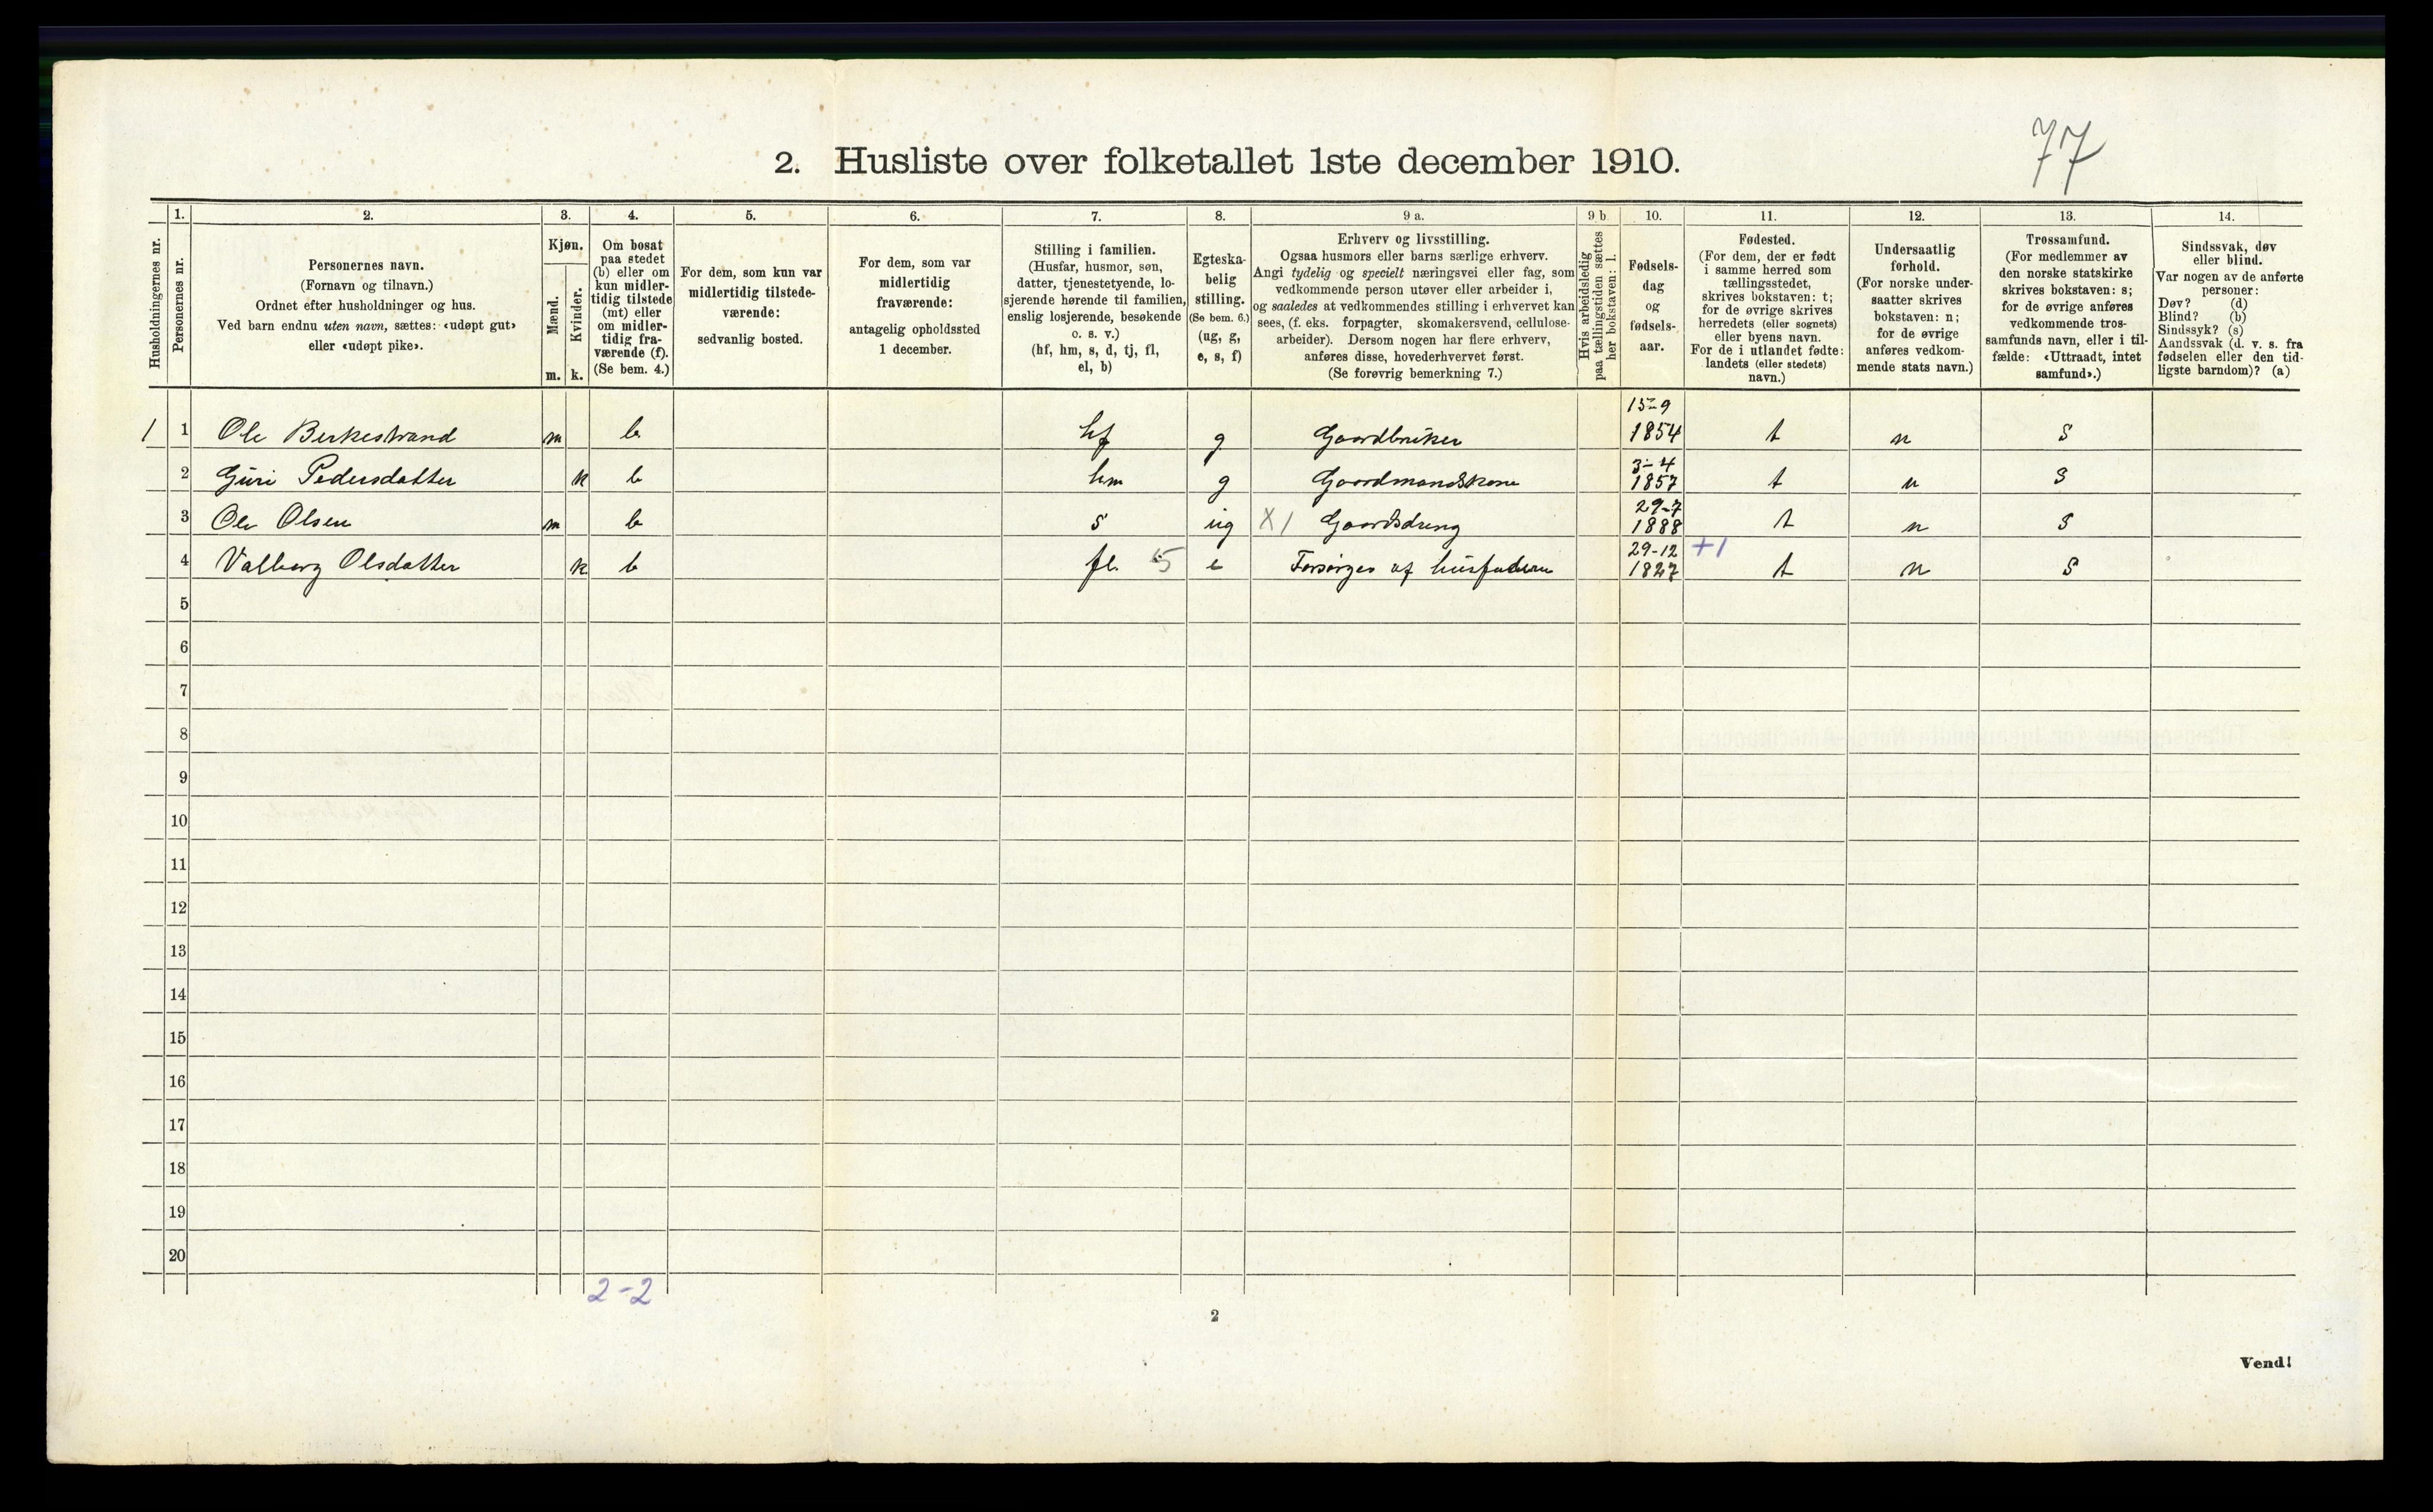 77
2. Husliste over folketallet 1ste december 1910.
Husholdningernes nr.
1. Personernes nr.
2.
Personernes navn.
(Fornavn og tilnavn.)
Ordnet efter husholdninger og hus.
Ved barn endnu uten navn, sættes: «udøpt gut»
eller «udøpt pike».
3.
Kjøn.
Mænd. Kvinder.
m. k.
4.
Om bosat
paa stedet
(b) eller om
kun midler-
tidig tilstede
(mt) eller
om midler-
tidig fra-
værende (f).
(Se bem. 4.)
5.
For dem, som kun var
midlertidig tilstede-
værende:
sedvanlig bosted.
6.
For dem, som var
midlertidig
fraværende:
antagelig opholdssted
1 december.
7.
Stilling i familien.
(Husfar, husmor, søn,
datter, tjenestetyende, lo-
sjerende hørende til familien,
enslig losjerende, besøkende
o. s. v.)
(hf, hm, s, d, tj, fl,
el, b)
8.
Egteska-
belig
stilling.
(Se bem. 6.)
(ug, g,
e, s, f)
9 a.
Erhverv og livsstilling.
Ogsaa husmors eller barns særlige erhverv.
Angi tydelig og specielt næringsvei eller fag, som
vedkommende person utøver eller arbeider i,
og saaledes at vedkommendes stilling i erhvervet kan
sees, (f. eks. forpagter, skomakersvend, cellulose-
arbeider). Dersom nogen har flere erhverv,
anføres disse, hovederhvervet først.
(Se forøvrig bemerkning 7.)
9 b
Hvis arbeidsledig
paa tællingstiden sættes
her bokstaven: l.
10.
Fødsels-
dag
og
fødsels-
aar.
11.
Fødested.
(For dem, der er født
i samme herred som
tællingsstedet,
skrives bokstaven: t;
for de øvrige skrives
herredets (eller sognets)
eller byens navn.
For de i utlandet fødte:
landets (eller stedets)
navn.)
12.
Undersaatlig
forhold.
(For norske under-
saatter skrives
bokstaven: n;
for de øvrige
anføres vedkom-
mende stats navn.)
13.
Trossamfund.
(For medlemmer av
den norske statskirke
skrives bokstaven: s;
for de øvrige anføres
vedkommende tros-
samfunds navn, eller i til-
fælde: «Uttraadt, intet
samfund».)
14.
Sindssvak, døv
eller blind.
Var nogen av de anførte
personer:
Døv? (d)
Blind? (b)
Sindssyk? (s)
Aandssvak (d. v. s. fra
fødselen eller den tid-
ligste barndom)? (a)
1 1 Ole Berkestrand m b hf g Gaardbruker 15-9 1854 t n s
2 Guri Pedersdatter k b hm g Gaardmandskone 3-4 1857 t n s
3 Ole Olsen m b s ug X1 Gaardsdreng 29-7 1888 t n s
4 Valborg Olsdatter k b fl. 5 e Forsørges af husfaderen 29-12 1827 +1 t n s
5
6
7
8
9
10
11
12
13
14
15
16
17
18
19
20
2-2
2
Vend!